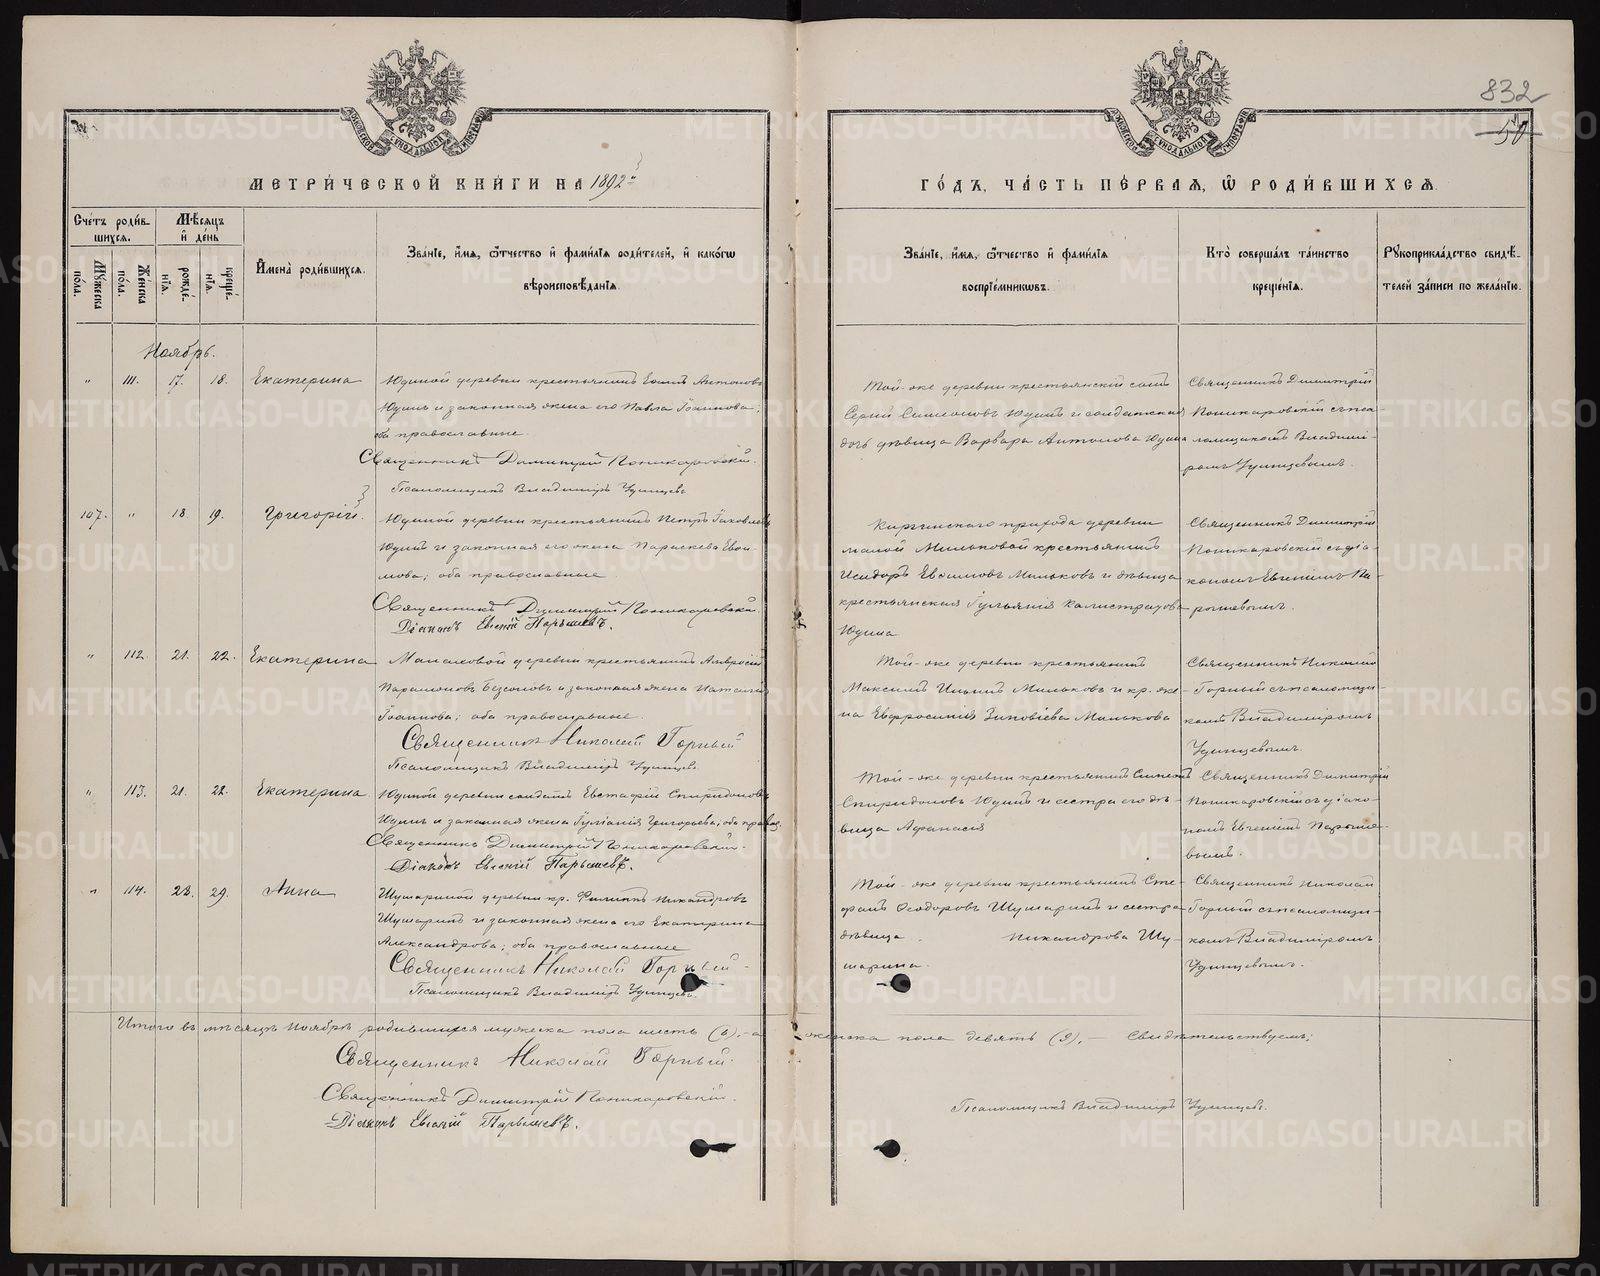 832
50
МЕТРИ́ЧЕСКОЙ КНИ́ГИ НА 1892й
ГО́ДЪ, ЧА́СТЬ ПЕ́РВАЯ, Ѡ РОДИ́ВШИХСЯ.
Сче́тъ роди́вшихся.
Мѣ́сяцъ и́ де́нь
Му́жеска по́ла.
Же́нска по́ла.
рожде́нїя.
креще́нїя.
И҆мена̀ роди́вшихся.
Зва́нїе, и҆́мя, ѻ҆́тчество и҆ фами́лїя роди́телей, и҆ како́гѡ
вѣроисповѣ́данїя.
Зва́нїе, и҆́мя, ѻ҆́тчество и҆ фами́лїя
воспрїе́мникѡвъ.
Кто̀ соверша́лъ та́инство
креще́нїя.
Рꙋкоприкла́дство свидѣ́телей за́писи по жела́нїю.
Ноябрь.
" 111. 17. 18. Екатерина
Юдиной деревни крестьянинъ Антоновъ
Юдинъ и законная жена его Павла Іоаннова;
оба православные.
Священникъ Димитрій Поникаровскій.
Псаломщикъ Владиміръ Удинцевъ
Той-же деревни крестьянскій сынъ
Сергій Симеоновъ Юдинъ и солдатская
дочь дѣвица Варвара Антонова Юдина
Священникъ Димитрій
Поникаровскій съ псаломщикомъ Владиміромъ Удинцевымъ.
107. " 18. 19. Григорій.
Юдиной деревни крестьянинъ Петръ Іаковлевъ
Юдинъ и законная его жена Параскева Евѳимова; оба православные
Священникъ Димитрій Поникаровскій.
Діаконъ Евгеній Парышевъ.
Киргинского прихода деревни
малой Мильковой крестьянинъ
Исидоръ Евѳимовъ Мильковъ и дѣвица
крестьянская Іуліанія Калистратова
Юдина
Священникъ Димитрій
Поникаровскій съ діакономъ Евгеніемъ Парышевымъ.
" 112. 21. 22. Екатерина
деревни крестьянинъ Амвросій
Парамоновъ и законная жена Наталія
Іоаннова; оба православные.
Священникъ Николай Горный
Псаломщикъ Владиміръ Удинцевъ.
Той-же деревни крестьянинъ
Максимъ Ильинъ Мильковъ и кр. жена Евфросинія Зиновіева Милькова
Священникъ Николай
Горный съ псаломщикомъ Владиміромъ
Удинцевымъ.
" 113. 21. 22. Екатерина
Юдиной деревни солдатъ Евстафій Спиридоновъ
Юдинъ и законная жена Іуліанія Григорьева; оба правосл.
Священникъ Димитрій Поникаровскій.
Діаконъ Евгеній Парышевъ.
Той-же деревни крестьянинъ Симеонъ
Спиридоновъ Юдинъ и сестра его дѣвица Афанасія
Священникъ Димитрій
Поникаровскій съ діакономъ Евгеніемъ Парышевымъ.
" 114. 23. 29. Анна
Шушариной деревни кр. Филиппъ Никандровъ
Шушаринъ и законная жена его Екатерина
Александрова; оба православные
Священникъ Николай Горный
Псаломщикъ Владиміръ Удинцевъ.
Той-же деревни крестьянинъ Стефанъ Ѳеодоровъ Шушаринъ и сестра
дѣвица Никандрова Шушарина.
Священникъ Николай
Горный съ псаломщикомъ Владиміромъ
Удинцевымъ.
Итого въ мѣсяцѣ Ноябрѣ родившихся мужеска пола шесть (6), а женска пола девять (9). Свидѣтельствуемъ:
Священникъ Николай Горный.
Священникъ Димитрій Поникаровскій.
Діаконъ Евгеній Парышевъ.
Псаломщикъ Владиміръ Удинцевъ.
METRIKI.GASO-URAL.RU